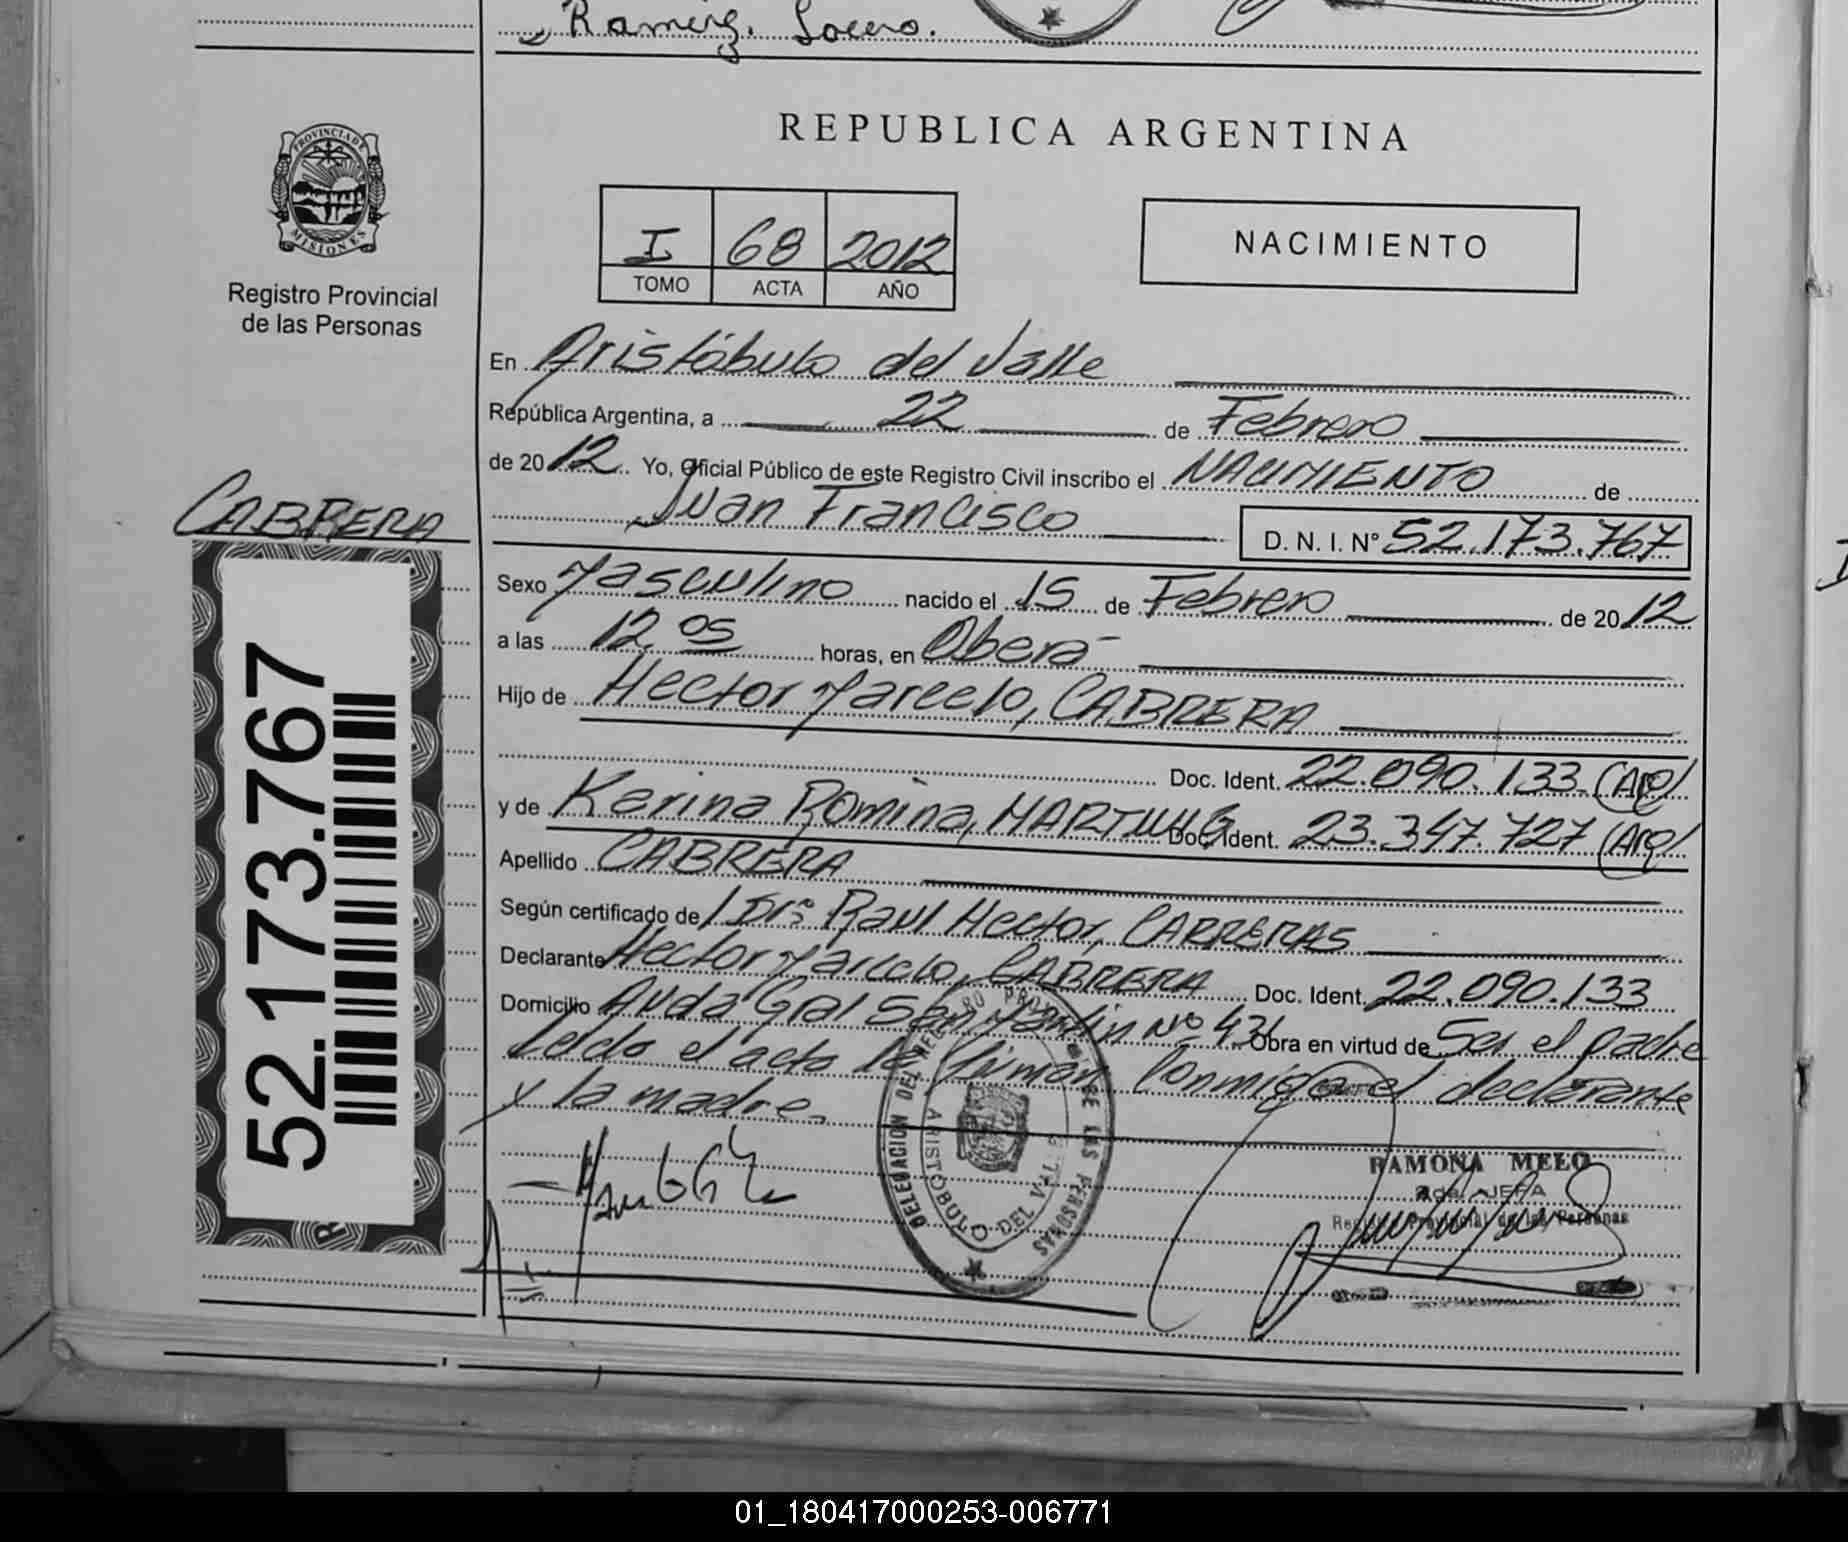 Ramirez. Socero.
PROVINCIA DE
MISIONES
Registro Provincial
de las Personas
REPUBLICA ARGENTINA
I 68 2012
TOMO ACTA AÑO
NACIMIENTO
En Aristóbulo del Valle
República Argentina, a 22 de Febrero
de 2012 Yo, Oficial Público de este Registro Civil inscribo el NACIMIENTO de
Juan Francisco D. N. I. N° 52.173.767
CABRERA
52.173.767
Sexo Masculino nacido el 15 de Febrero de 2012
a las 12,05 horas, en Oberá
Hijo de Hector Marcelo, CABRERA
Doc. Ident. 22.090.133 (Arg)
y de Karina Romina, Doc. Ident. 23.347.727 (Arg)
Apellido CABRERA
Según certificado de Raul Hector, CARRERAS
Declarante Hector Marcelo, CABRERA Doc. Ident. 22.090.133
Domicilio Avda Gral San Martin Nº 431 Obra en virtud de Ser el padre
Leida el acta la firman Conmigo el declarante
y la madre.
DELEGACION DEL REGISTRO PROVINCIAL DE LAS PERSONAS
ARISTOBULO DEL VALLE
RAMONA MELO
2da. JEFA
Registro Provincial de las Personas
01_180417000253-006771